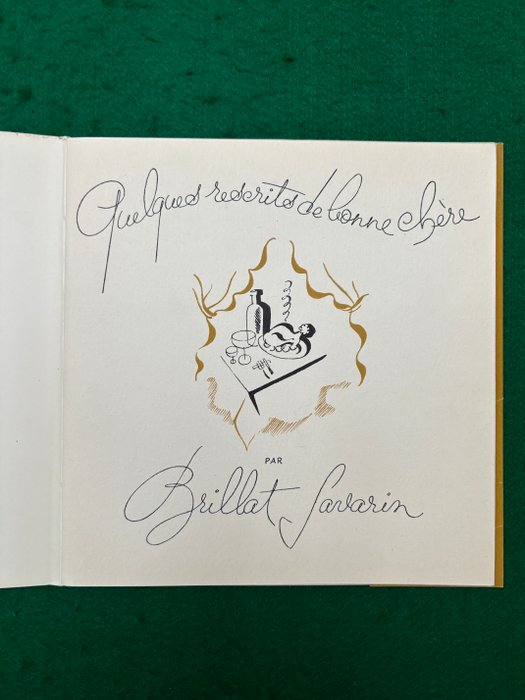 Quelques rescrits de bonne chère
PAR
Brillat Savarin